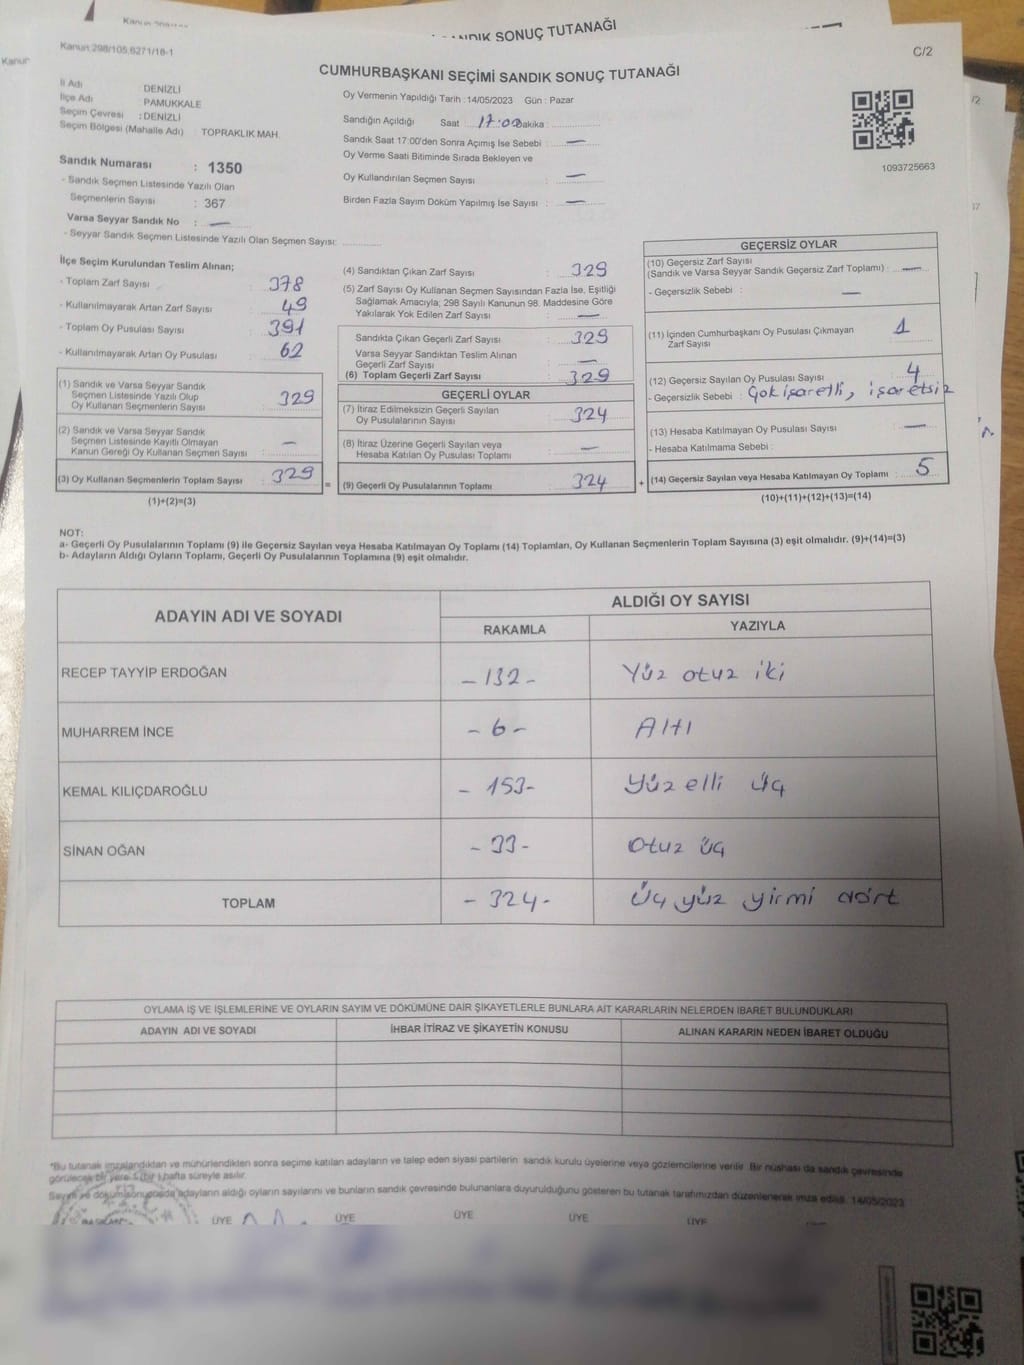 SANDIK SONUÇ TUTANAĞI
Kanun 298/105.6271/16-1
C/2
CUMHURBAŞKANI SEÇİMİ SANDIK SONUÇ TUTANAĞI
İl Adı DENİZLİ
İlçe Adı PAMUKKALE
Seçim Çevresi : DENİZLİ
Seçim Bölgesi (Mahalle Adı) : TOPRAKLIK MAH.
Sandık Numarası : 1350
- Sandık Seçmen Listesinde Yazılı Olan
Seçmenlerin Sayısı : 367
Varsa Seyyar Sandık No : —
- Seyyar Sandık Seçmen Listesinde Yazılı Olan Seçmen Sayısı:
Oy Vermenin Yapıldığı Tarih : 14/05/2023 Gün : Pazar
Sandığın Açıldığı Saat 17:00 Dakika :
Sandık Saat 17:00'den Sonra Açımış İse Sebebi : —
Oy Verme Saati Bitiminde Sırada Bekleyen ve
Oy Kullandırılan Seçmen Sayısı : —
Birden Fazla Sayım Döküm Yapılmış İse Sayısı : —
1093725663
İlçe Seçim Kurulundan Teslim Alınan;
- Toplam Zarf Sayısı : 378
- Kullanılmayarak Artan Zarf Sayısı : 49
- Toplam Oy Pusulası Sayısı : 391
- Kullanılmayarak Artan Oy Pusulası : 62
(1) Sandık ve Varsa Seyyar Sandık
Seçmen Listesinde Yazılı Olup
Oy Kullanan Seçmenlerin Sayısı : 329
(2) Sandık ve Varsa Seyyar Sandık
Seçmen Listesinde Kayıtlı Olmayan
Kanun Gereği Oy Kullanan Seçmen Sayısı : —
(3) Oy Kullanan Seçmenlerin Toplam Sayısı : 329
(1)+(2)=(3)
(4) Sandıktan Çıkan Zarf Sayısı : 329
(5) Zarf Sayısı Oy Kullanan Seçmen Sayısından Fazla İse, Eşitliği
Sağlamak Amacıyla; 298 Sayılı Kanunun 98. Maddesine Göre
Yakılarak Yok Edilen Zarf Sayısı : —
Sandıkta Çıkan Geçerli Zarf Sayısı : 329
Varsa Seyyar Sandıktan Teslim Alınan
Geçerli Zarf Sayısı : —
(6) Toplam Geçerli Zarf Sayısı : 329
GEÇERLİ OYLAR
(7) İtiraz Edilmeksizin Geçerli Sayılan
Oy Pusulalarının Sayısı : 324
(8) İtiraz Üzerine Geçerli Sayılan veya
Hesaba Katılan Oy Pusulası Toplamı : —
= (9) Geçerli Oy Pusulalarının Toplamı : 324 +
GEÇERSİZ OYLAR
(10) Geçersiz Zarf Sayısı
(Sandık ve Varsa Seyyar Sandık Geçersiz Zarf Toplamı) : —
- Geçersizlik Sebebi : —
(11) İçinden Cumhurbaşkanı Oy Pusulası Çıkmayan
Zarf Sayısı : 1
(12) Geçersiz Sayılan Oy Pusulası Sayısı : 4
- Geçersizlik Sebebi : Çok işaretli, işaretsiz
(13) Hesaba Katılmayan Oy Pusulası Sayısı : —
- Hesaba Katılmama Sebebi :
(14) Geçersiz Sayılan veya Hesaba Katılmayan Oy Toplamı : 5
(10)+(11)+(12)+(13)=(14)
NOT:
a- Geçerli Oy Pusulalarının Toplamı (9) ile Geçersiz Sayılan veya Hesaba Katılmayan Oy Toplamı (14) Toplamları, Oy Kullanan Seçmenlerin Toplam Sayısına (3) eşit olmalıdır. (9)+(14)=(3)
b- Adayların Aldığı Oyların Toplamı, Geçerli Oy Pusulalarının Toplamına (9) eşit olmalıdır.
ADAYIN ADI VE SOYADI ALDIĞI OY SAYISI
RAKAMLA YAZIYLA
RECEP TAYYİP ERDOĞAN - 132 - Yüz otuz iki
MUHARREM İNCE - 6 - Altı
KEMAL KILIÇDAROĞLU - 153 - Yüz elli üç
SİNAN OĞAN - 33 - Otuz üç
TOPLAM - 324 - Üç yüz yirmi dört
OYLAMA İŞ VE İŞLEMLERİNE VE OYLARIN SAYIM VE DÖKÜMÜNE DAİR ŞİKAYETLERLE BUNLARA AİT KARARLARIN NELERDEN İBARET BULUNDUKLARI
ADAYIN ADI VE SOYADI İHBAR İTİRAZ VE ŞİKAYETİN KONUSU ALINAN KARARIN NEDEN İBARET OLDUĞU
*Bu tutanak imzalandıktan ve mühürlendikten sonra seçime katılan adayların ve talep eden siyasi partilerin sandık kurulu üyelerine veya gözlemcilerine verilir. Bir nüshası da sandık çevresinde
görülecek bir yere 1 (bir) hafta süreyle asılır.
Sayım ve döküm sonucunda adayların aldığı oyların sayılarını ve bunların sandık çevresinde bulunanlara duyurulduğunu gösteren bu tutanak tarafımızdan düzenlenerek imza edildi. 14/05/2023
ÜYE ÜYE ÜYE ÜYE ÜYE